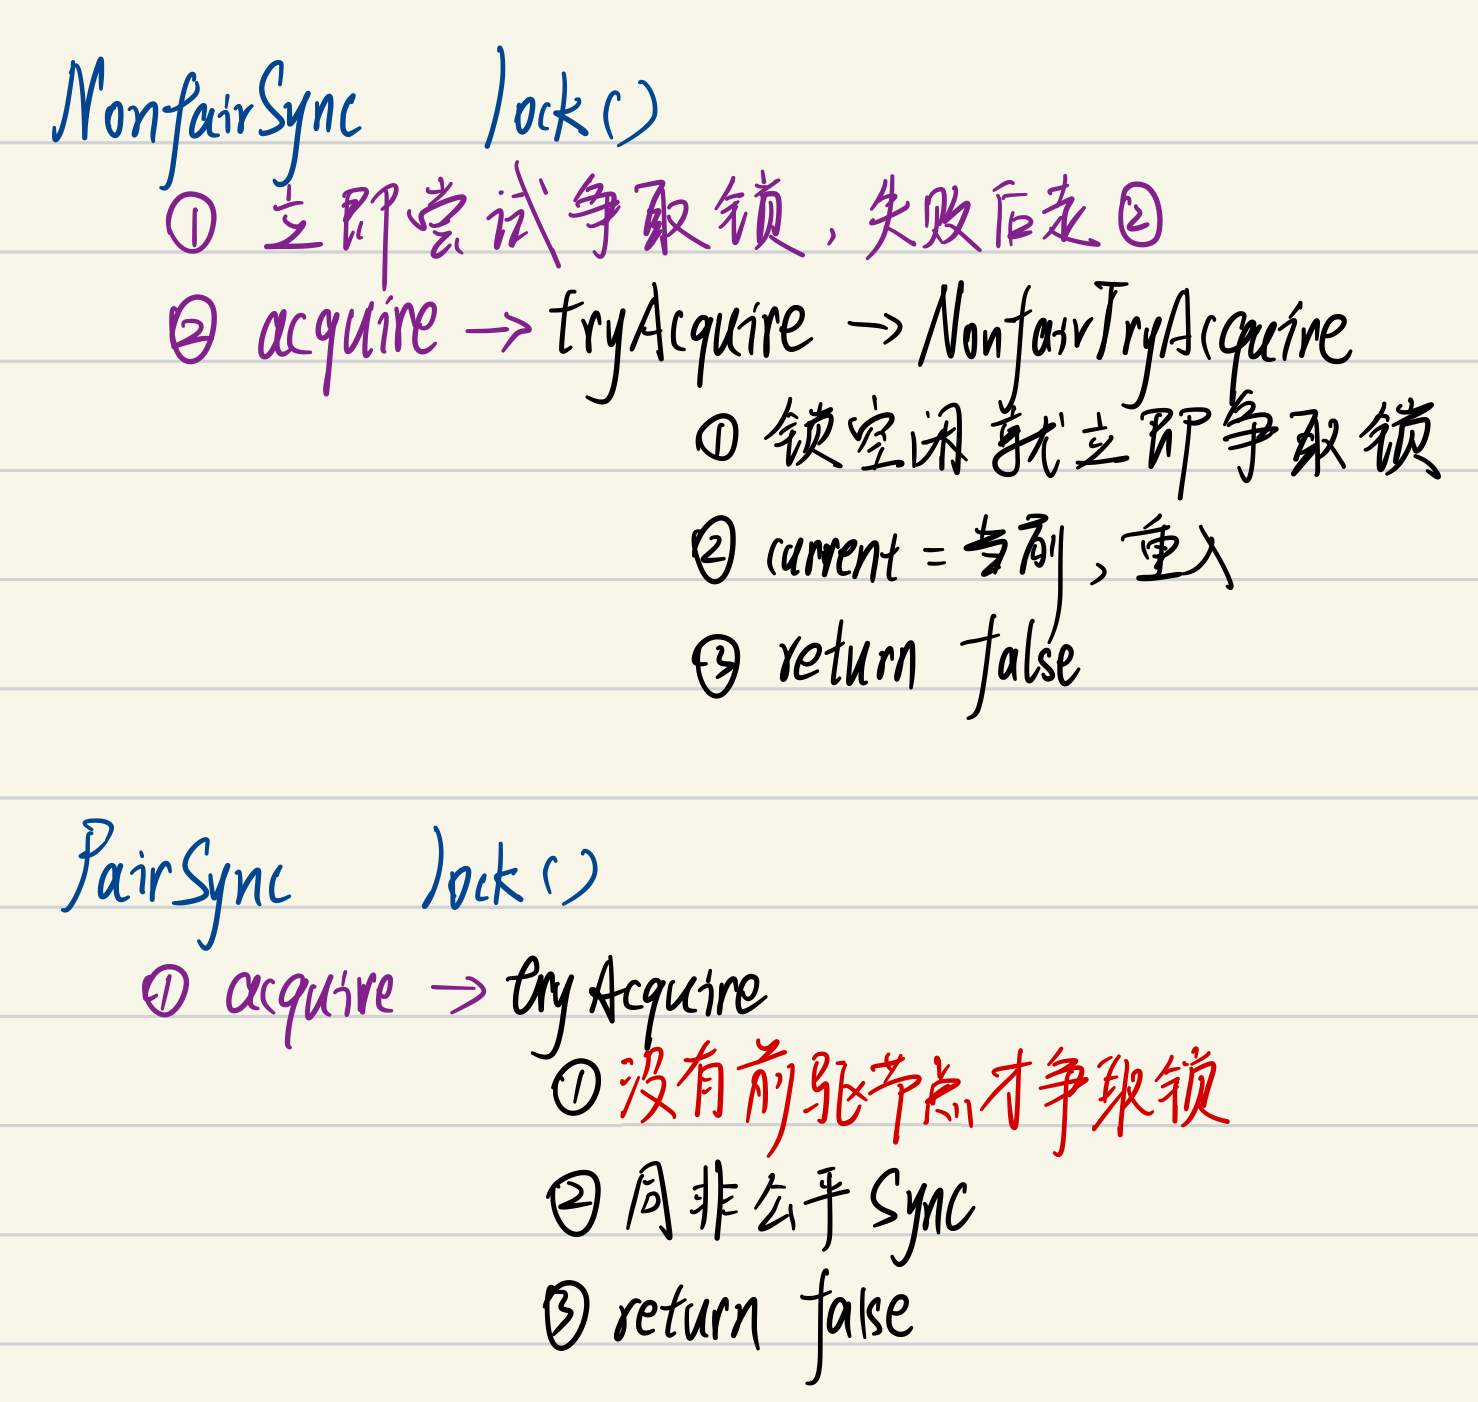 NonfairSync lock()
① 立即尝试争取锁，失败后走②
② acquire → tryAcquire → NonfairTryAcquire
① 锁空闲就立即争取锁
② current = 当前，重入
③ return false
FairSync lock()
① acquire → tryAcquire
① 没有前驱节点才争取锁
② 同非公平Sync
③ return false